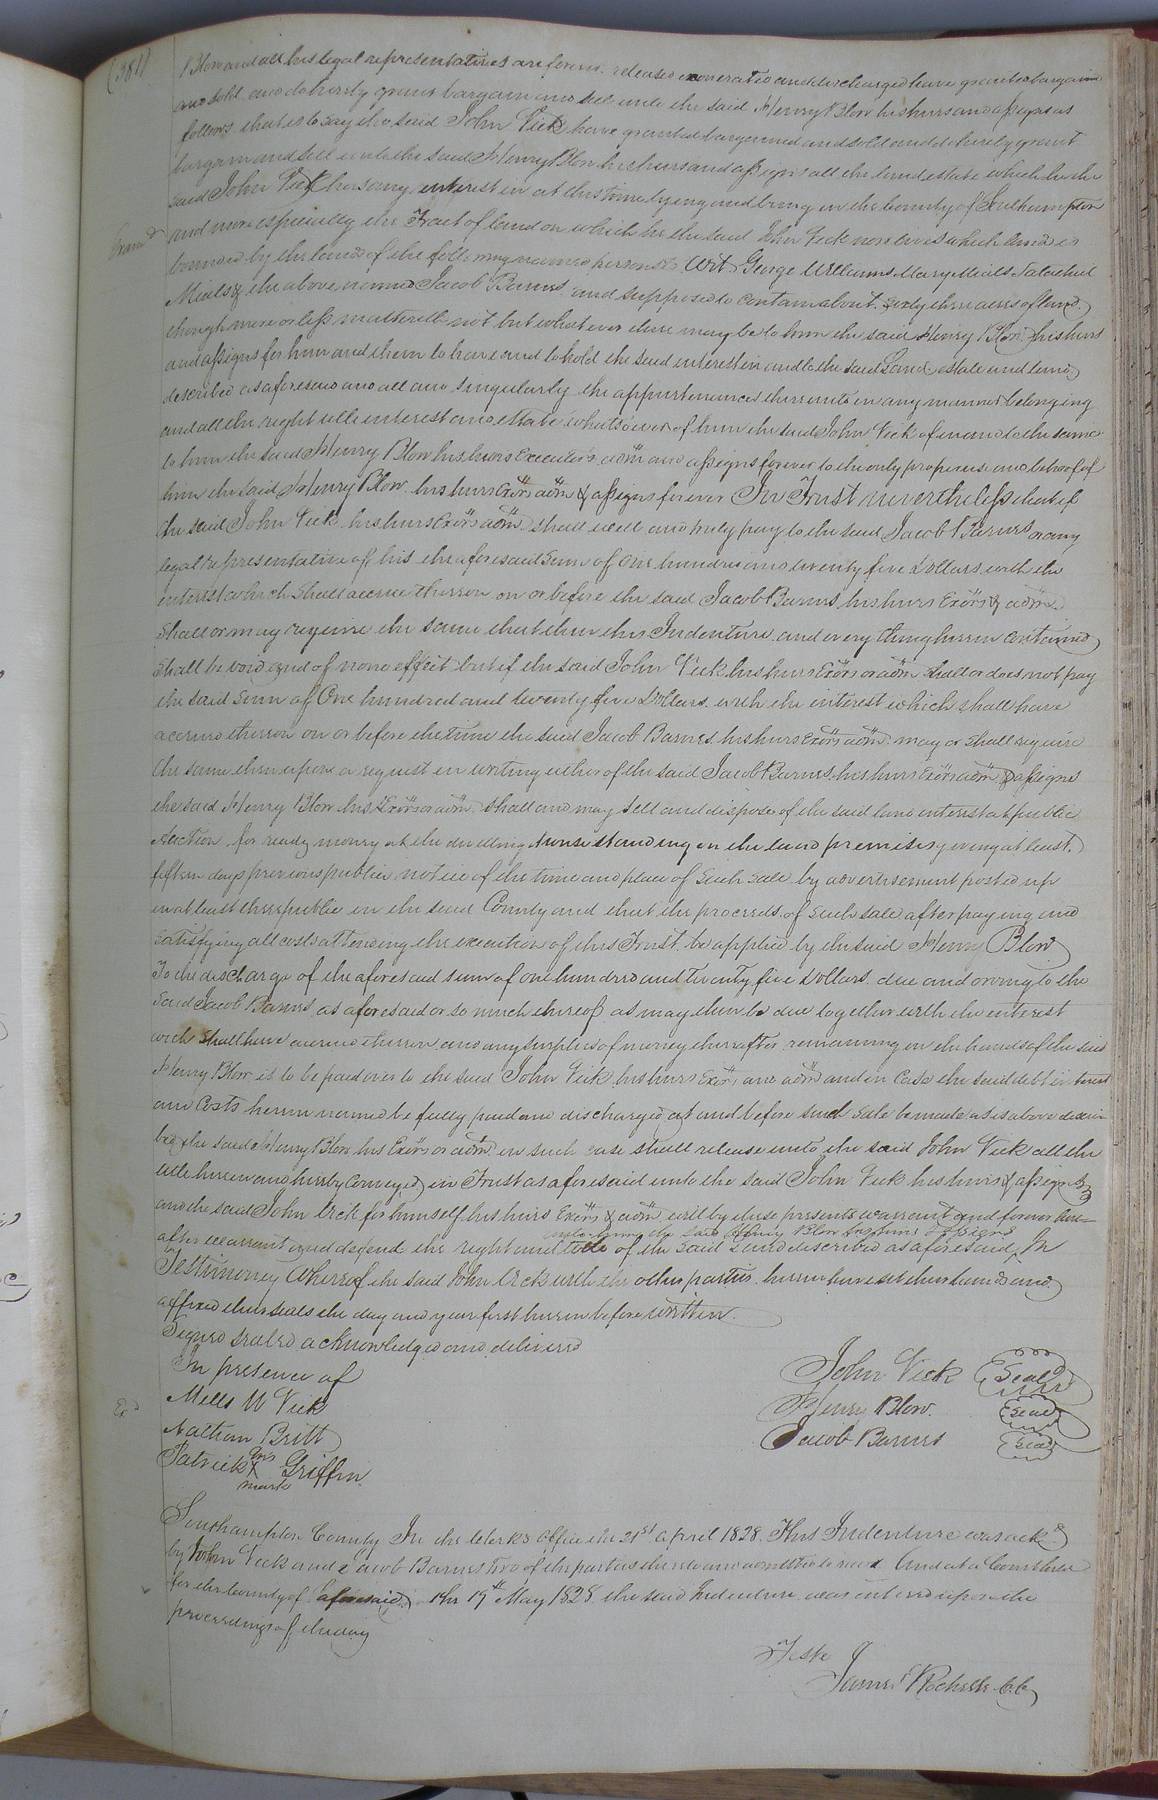 (381)
Blow and all his legal representatives are forever released exonerated and discharged have granted bargained
and sold and do hereby grant bargain and sell unto the said Henry Blow his heirs and assigns as
follows that is to say the said John Vick have granted bargained and sold and do hereby grant
bargain and sell unto the said Henry Blow his heirs and assigns all the land estate which he the
said John Vick has any interest in at this time lying and being in the County of Southampton
and more especially the Tract of land on which he the said John Vick now lives which land is
bounded by the lands of the following named persons to Wit George Williams Mary Meals
Meals & the above named Jacob Barnes and supposed to contain about sixty three acres of land
though more or less matereth not but whatever there may be to him the said Henry Blow his heirs
and assigns for him and them to have and to hold the said interest in and to the said Land estate and land
described as aforesaid and all and singularly the appurtenances thereunto in any manner belonging
and all the right title interest and estate whatsoever of him the said John Vick of in and to the same
to him the said Henry Blow his heirs Executors adm and assigns forever to the only proper use and behoof of
him the said Henry Blow his heirs Exors adm & assigns forever In Trust nevertheless that if
the said John Vick his heirs Exors adm shall well and truly pay to the said Jacob Barnes or any
legal representative of his the aforesaid Sum of One hundred and twenty five Dollars with the
interest which shall accrue thereon on or before the said Jacob Barnes his heirs Exors & adm
Shall or may require the same that then this Indenture and every thing herein contained
shall be void and of none effect but if the said John Vick his heirs Exors or adm shall or does not pay
the said Sum of One hundred and twenty five Dollars with the interest which shall have
accrued thereon on or before the time the said Jacob Barnes his heirs Exors adm may or shall require
the same then upon a request in writing either of the said Jacob Barnes his heirs Exors adm & assigns
the said Henry Blow his Exors or adm shall and may Sell and dispose of the said land interest at public
Auction for ready money at the dwelling house standing on the land premises giving at least
fifteen days previous public notice of the time and place of Such sale by advertisement posted up
in at least three public in the said County and that the proceeds of such sale after paying and
satisfying all costs attending the execution of this Trust be applied by the said Henry Blow
To the discharge of the aforesaid sum of one hundred and twenty five Dollars due and owing to the
Said Jacob Barnes as aforesaid or so much thereof as may then be due together with the interest
wich Shall have accrued thereon and any surplus of money thereafter remaining in the hands of the said
Henry Blow is to be paid over to the said John Vick his heirs Exors and adm and in Case the said debt interest
and Costs herein named be fully paid and discharged at and before such sale be made as is above descri
bed the said Henry Blow his Exors or adm in such case shall release unto the said John Vick all the
title herein and hereby Conveyed in Trust as aforesaid unto the said John Vick his heirs & assigns
and the said John Vick for himself his heirs Exors & adm will by these presents warrant and forever here=
unto him the said Henry Blow his heirs & assigns
after warrant and defend the right and title of the said Land described as aforesaid In
Testimoney Whereof the said John Vick with the other parties herein have set their hands and
affixed their seals the day and year first herein before written.
Signed sealed acknowledged and delivered
In presence of
Mills W Vick
Nathan Britt
Patrick his X mark Griffin
John Vick Seal
Henry Blow. Seal
Jacob Barnes Seal
Southampton County In the Clerks Office the 21st April 1828. This Indenture was ackd
by John Vick and Jacob Barnes two of the parties thereto and admitted to record And at a Court held
for the County of aforesaid the 19th May 1828 the said Indenture was entered upon the
proceedings of the day
Teste
James Rochelle C.C.